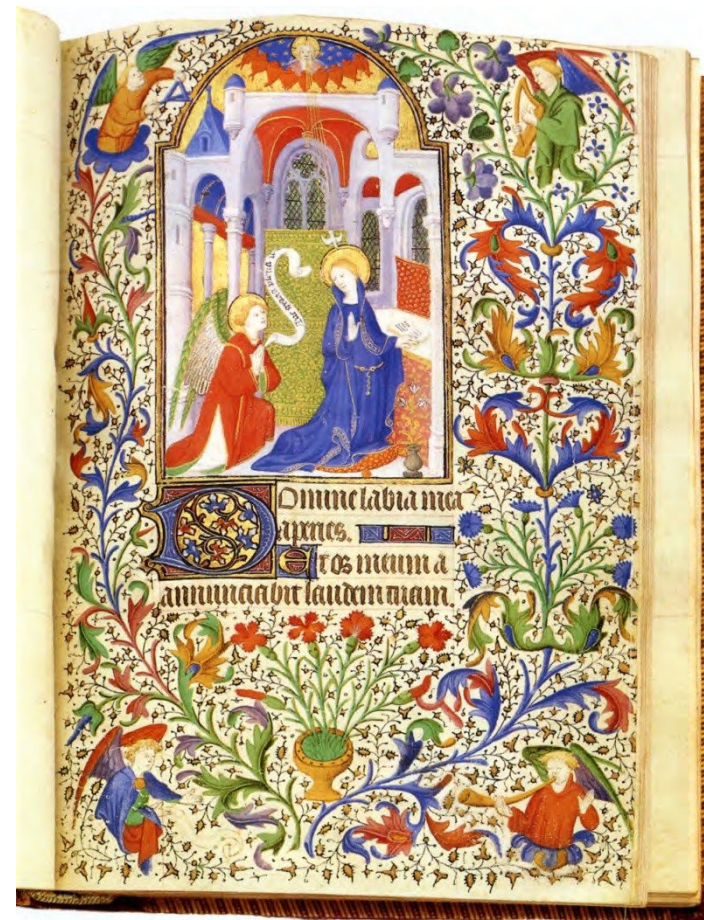 Domine labia mea
aperies.
Et os meum a
annunciabit laudem tuam